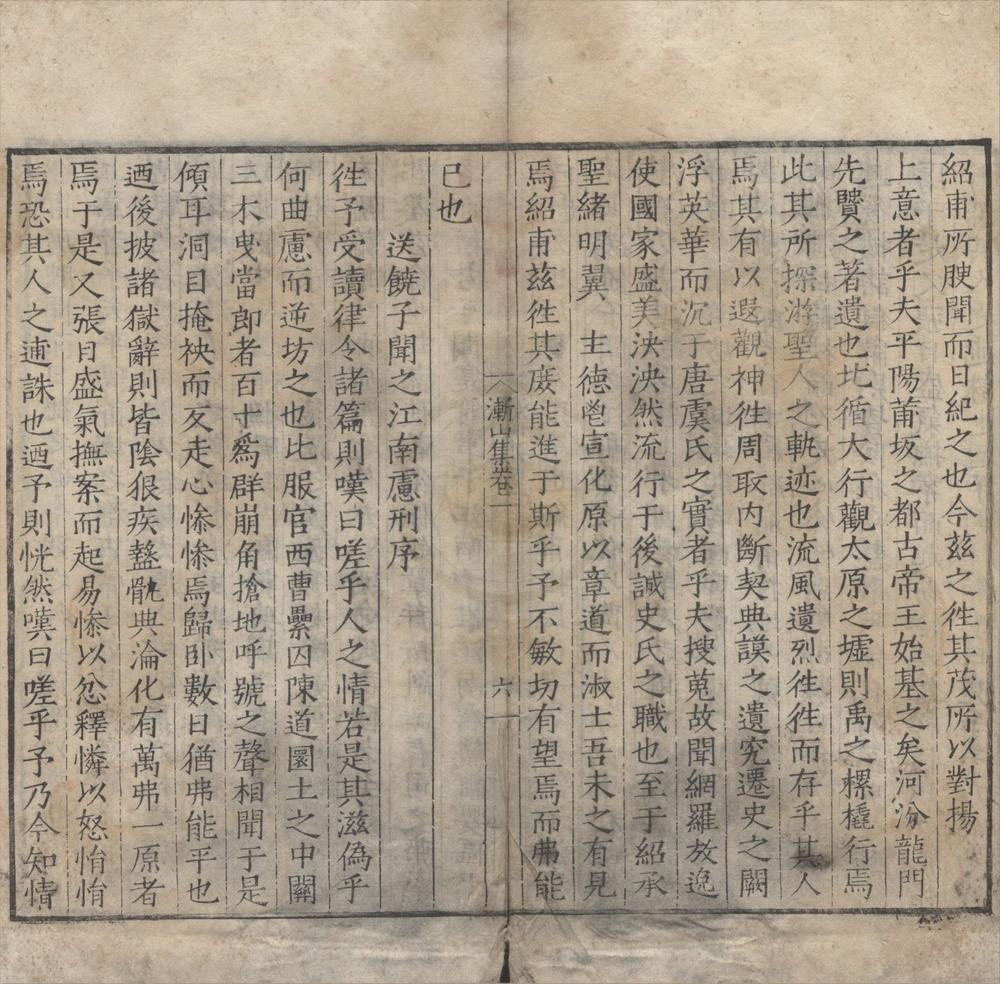 紹甫所腴聞而日紀之也今茲之徃其茂所以對揚
上意者乎夫平陽莆坂之都古帝王始基之矣河汾龍門
先贒之著遺也北循大行觀太原之墟則禹之樏橇行焉
此其所探游聖人之軌迹也流風遺烈徃徃而存乎其人
焉其有以遐觀神徃周取内斷契典謨之遺究遷史之闕
浮英華而沉于唐虞氏之實者乎夫搜蒐故聞網羅放逸
使國家盛美泱泱然流行于後誠史氏之職也至于紹承
聖緒明翼　主德鬯宣化原以章道而淑士吾未之有見
焉紹甫茲徃其庻能進于斯乎予不敏切有望焉而弗能
巳也
漸山集卷一
六
送饒子聞之江南慮刑序
徃予受讀律令諸篇則嘆曰嗟乎人之情若是其滋偽乎
何曲慮而逆坊之也比服官西曹纍囚陳道圜土之中關
三木曳當郎者百十為群崩角搶地呼號之聲相聞于是
傾耳洞目掩袂而反走心慘慘焉歸卧數日猶弗能平也
迺後披諸獄辭則皆陰狠疾盭骫典淪化有萬弗一原者
焉于是又張目盛氣撫案而起易慘以忿釋憐以怒悁悁
焉恐其人之逋誅也迺予則恍然嘆曰嗟乎予乃今知情